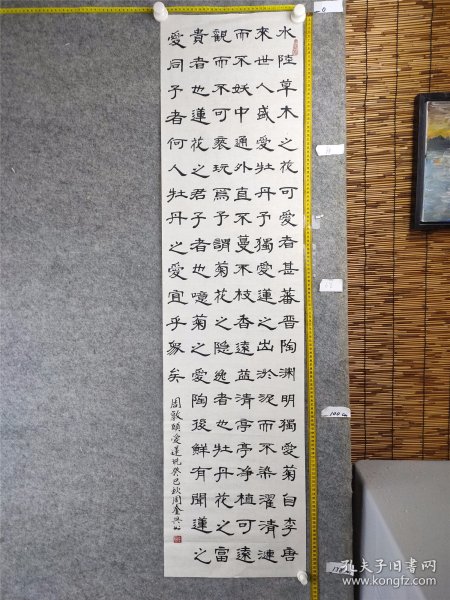 水陸草木之花可愛者甚蕃晋陶渊明獨愛菊自李唐
來世人盛愛牡丹予獨愛蓮之出淤泥而不染濯清漣
而不妖中通外直不蔓不枝香遠益清亭亭净植可遠
觀而不可褻玩焉予謂菊花之隐逸者也牡丹花之富
貴者也蓮花之君子者也噫菊之愛陶後鮮有聞蓮之
愛同予者何人牡丹之愛宜乎衆矣
周敦頤愛蓮説癸巳秋周
0
100cm
孔夫子旧书网
www.kongfz.com